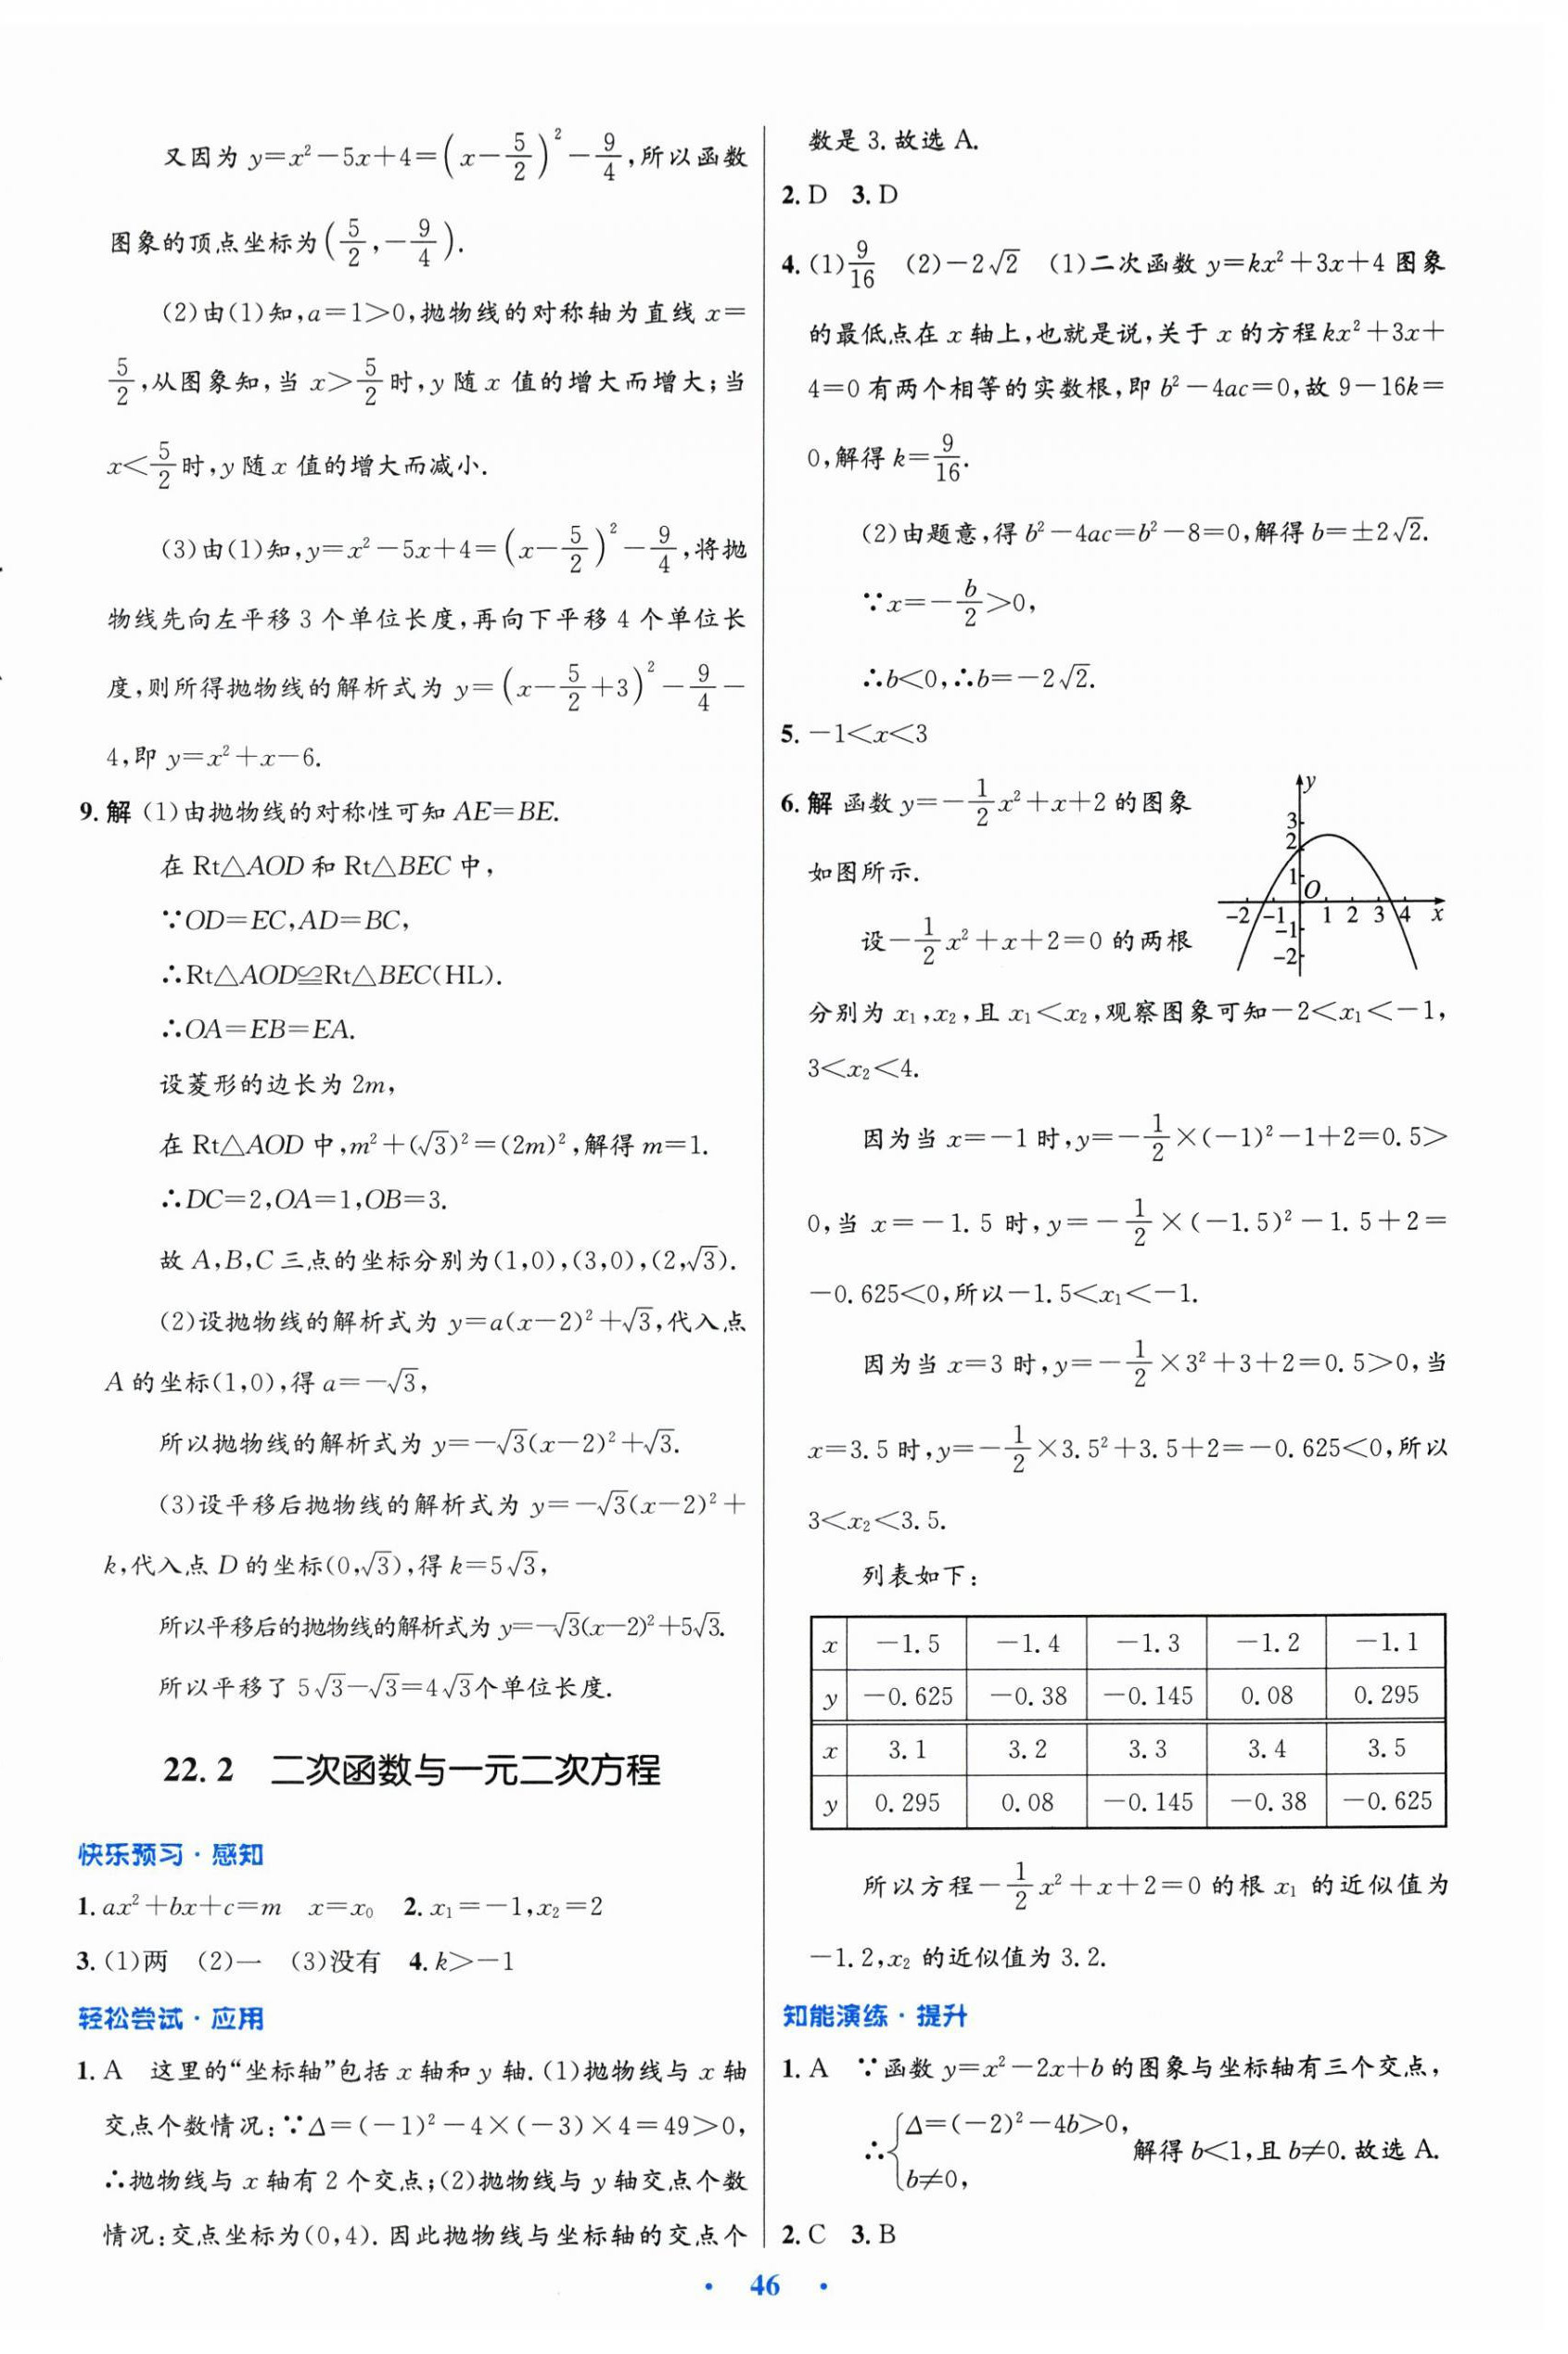 又因为 y=x²-5x+4=(x-5/2)²-9/4,所以函数
图象的顶点坐标为(5/2,-9/4).
(2)由(1)知,a=1>0,抛物线的对称轴为直线 x=
5/2,从图象知,当 x>5/2时,y 随 x 值的增大而增大;当
x<5/2时,y 随 x 值的增大而减小.
(3)由(1)知,y=x²-5x+4=(x-5/2)²-9/4,将抛
物线先向左平移 3 个单位长度,再向下平移 4 个单位长
度,则所得抛物线的解析式为 y=(x-5/2+3)²-9/4-
4,即 y=x²+x-6.
9. 解 (1)由抛物线的对称性可知 AE=BE.
在 Rt△AOD 和 Rt△BEC 中,
∵OD=EC,AD=BC,
∴Rt△AOD≌Rt△BEC(HL).
∴OA=EB=EA.
设菱形的边长为 2m,
在 Rt△AOD 中,m²+(√3)²=(2m)²,解得 m=1.
∴DC=2,OA=1,OB=3.
故 A,B,C 三点的坐标分别为(1,0),(3,0),(2,√3).
(2)设抛物线的解析式为 y=a(x-2)²+√3,代入点
A 的坐标(1,0),得 a=-√3,
所以抛物线的解析式为 y=-√3(x-2)²+√3.
(3)设平移后抛物线的解析式为 y=-√3(x-2)²+
k,代入点 D 的坐标(0,√3),得 k=5√3,
所以平移后的抛物线的解析式为 y=-√3(x-2)²+5√3.
所以平移了 5√3-√3=4√3个单位长度.
22.2 二次函数与一元二次方程
快乐预习·感知
1. ax²+bx+c=m x=x₀ 2. x₁=-1,x₂=2
3. (1)两 (2)一 (3)没有 4. k>-1
轻松尝试·应用
1. A 这里的“坐标轴”包括 x 轴和 y 轴.(1)抛物线与 x 轴
交点个数情况:∵Δ=(-1)²-4×(-3)×4=49>0,
∴抛物线与 x 轴有 2 个交点;(2)抛物线与 y 轴交点个数
情况:交点坐标为(0,4). 因此抛物线与坐标轴的交点个
数是 3. 故选 A.
2. D 3. D
4. (1)9/16 (2)-2√2 (1)二次函数 y=kx²+3x+4 图象
的最低点在 x 轴上,也就是说,关于 x 的方程kx²+3x+
4=0 有两个相等的实数根,即 b²-4ac=0,故 9-16k=
0,解得 k=9/16.
(2)由题意,得 b²-4ac=b²-8=0,解得 b=±2√2.
∵x=-b/2>0,
∴b<0,∴b=-2√2.
5. -1<x<3
6. 解 函数 y=-1/2x²+x+2 的图象
如图所示.
y
3
2
1
O
-2 -1 1 2 3 4 x
-1
-2
设-1/2x²+x+2=0 的两根
分别为 x₁,x₂,且 x₁<x₂,观察图象可知-2<x₁<-1,
3<x₂<4.
因为当 x=-1 时,y=-1/2×(-1)²-1+2=0.5>
0,当 x=-1.5 时,y=-1/2×(-1.5)²-1.5+2=
-0.625<0,所以-1.5<x₁<-1.
因为当 x=3 时,y=-1/2×3²+3+2=0.5>0,当
x=3.5 时,y=-1/2×3.5²+3.5+2=-0.625<0,所以
3<x₂<3.5.
列表如下:
x -1.5 -1.4 -1.3 -1.2 -1.1
y -0.625 -0.38 -0.145 0.08 0.295
x 3.1 3.2 3.3 3.4 3.5
y 0.295 0.08 -0.145 -0.38 -0.625
所以方程-1/2x²+x+2=0 的根 x₁ 的近似值为
-1.2,x₂ 的近似值为 3.2.
知能演练·提升
1. A ∵函数 y=x²-2x+b 的图象与坐标轴有三个交点,
∴{Δ=(-2)²-4b>0,
b≠0, 解得 b<1,且 b≠0. 故选 A.
2. C 3. B
· 46 ·